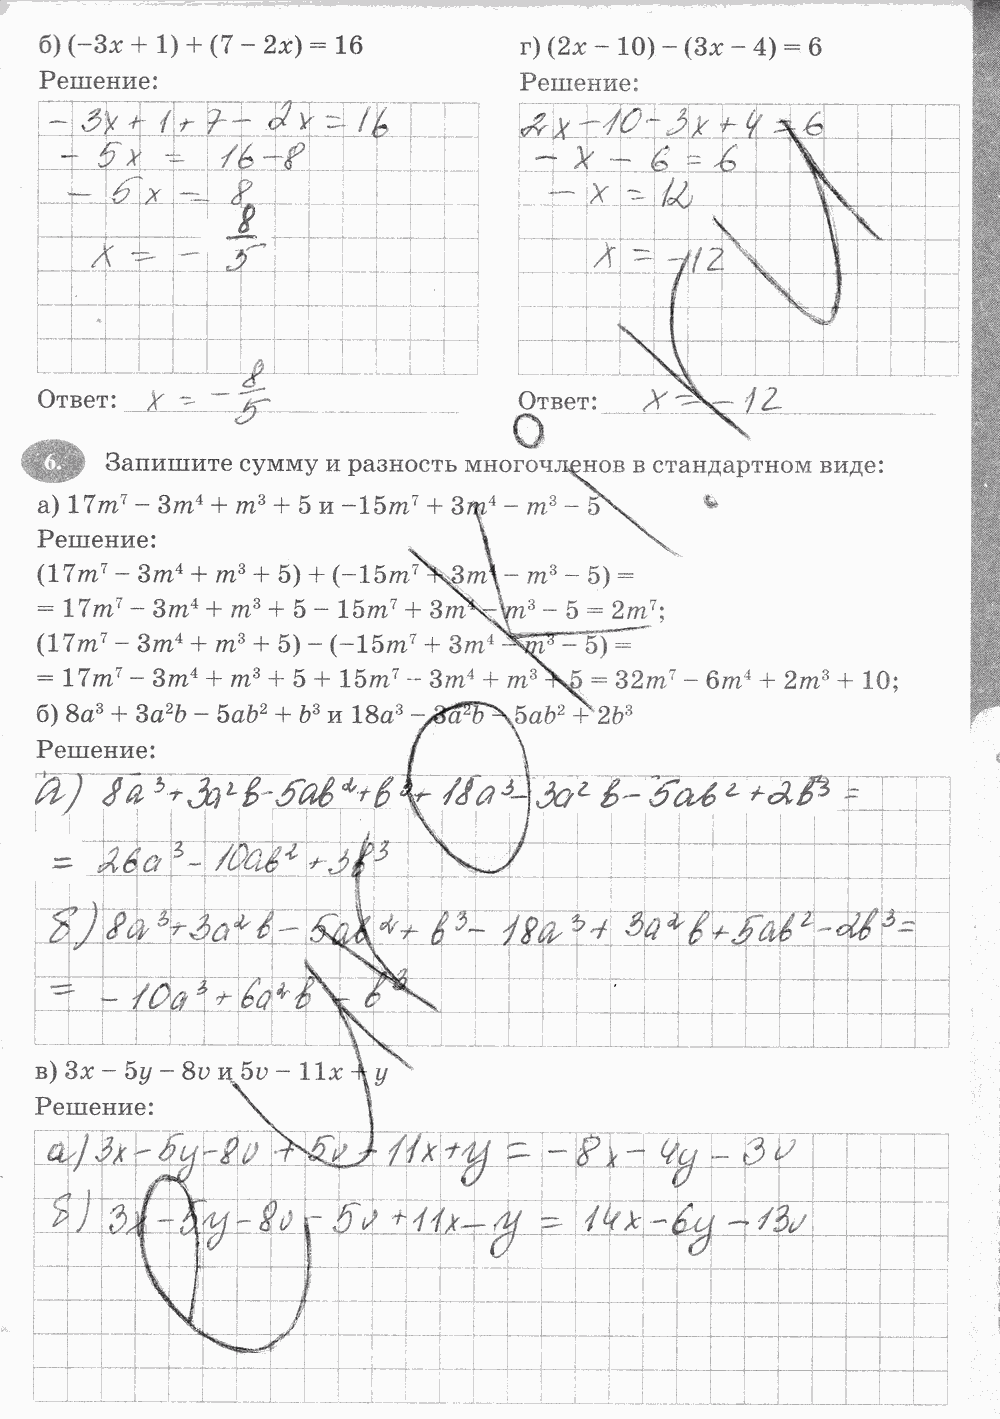 б) (−3x + 1) + (7 − 2x) = 16
Решение:
− 3x + 1 + 7 − 2x = 16
− 5x = 16 − 8
− 5x = 8
x = − 8/5
Ответ: x = − 8/5
г) (2x − 10) − (3x − 4) = 6
Решение:
2x − 10 − 3x + 4 = 6
− x − 6 = 6
− x = 12
x = −12
Ответ: x = − 12
6. Запишите сумму и разность многочленов в стандартном виде:
а) 17m⁷ − 3m⁴ + m³ + 5 и −15m⁷ + 3m⁴ − m³ − 5
Решение:
(17m⁷ − 3m⁴ + m³ + 5) + (−15m⁷ + 3m⁴ − m³ − 5) =
= 17m⁷ − 3m⁴ + m³ + 5 − 15m⁷ + 3m⁴ − m³ − 5 = 2m⁷;
(17m⁷ − 3m⁴ + m³ + 5) − (−15m⁷ + 3m⁴ − m³ − 5) =
= 17m⁷ − 3m⁴ + m³ + 5 + 15m⁷ − 3m⁴ + m³ + 5 = 32m⁷ − 6m⁴ + 2m³ + 10;
б) 8a³ + 3a²b − 5ab² + b³ и 18a³ − 3a²b − 5ab² + 2b³
Решение:
а) 8a³ + 3a²b − 5ab² + b³ + 18a³ − 3a²b − 5ab² + 2b³ =
= 26a³ − 10ab² + 3b³
б) 8a³ + 3a²b − 5ab² + b³ − 18a³ + 3a²b + 5ab² − 2b³ =
= − 10a³ + 6a²b − b³
в) 3x − 5y − 8v и 5v − 11x + y
Решение:
а) 3x − 5y − 8v + 5v − 11x + y = − 8x − 4y − 3v
б) 3x − 5y − 8v − 5v + 11x − y = 14x − 6y − 13v